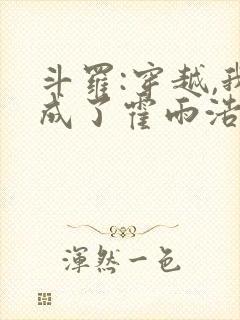 斗罗:穿越,我
成了霍雨浩
渾然一色